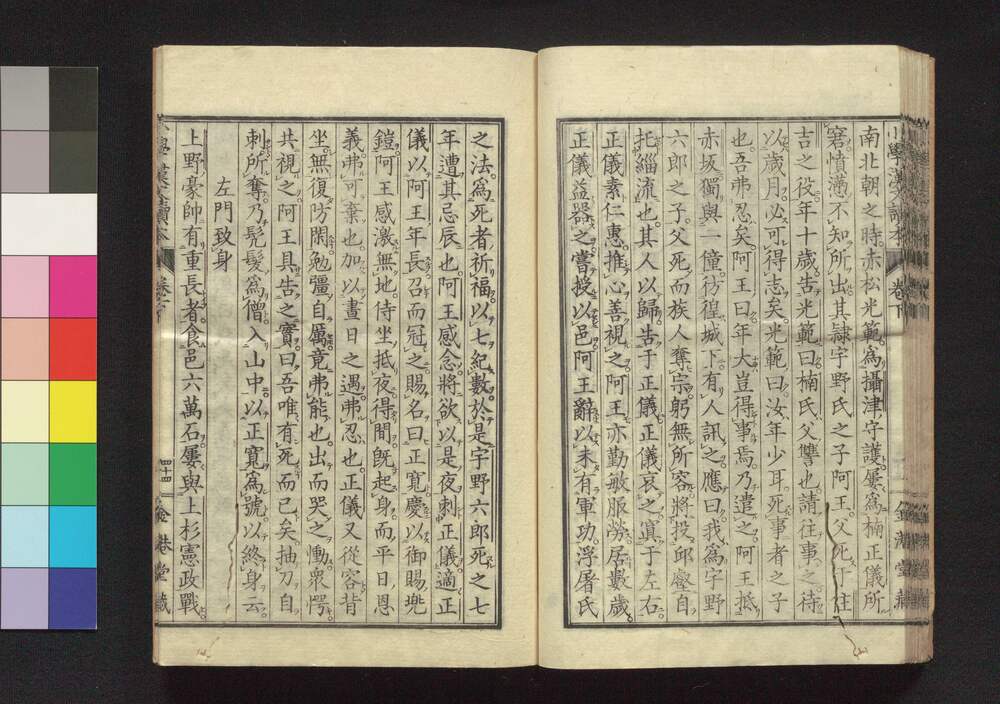 南北朝之時赤松光範爲攝津守護屢爲楠正儀所
窘憤懣不知所出其隷宇野氏之子阿王父死于住
吉之役年十歳告光範曰楠氏父讐也請往事之待
以歳月必可得志矣光範曰汝年少耳死事者之子
也吾弗忍矣阿王曰年大豈得事焉乃遣之阿王抵
赤坂獨與一僮彷徨城下有人訊之應曰我爲宇野
六郎之子父死而族人奪宗躬無所容將投邱壑自
托緇流也其人以歸告于正儀正儀哀之寘于左右
正儀素仁惠推心善視之阿王亦勤敏服勞居數歳
正儀益器之嘗授以邑阿王辭以未有軍功浮屠氏
之法爲死者祈福以七紀數於是宇野六郎死之七
年遭其忌辰也阿王感念將欲以是夜刺正儀適正
儀以阿王年長召而冠之賜名曰正寛慶以御賜兠
鎧阿王感激無地侍坐抵夜得間既起身而平日恩
義弗可棄也加以晝日之遇弗忍也正儀又從容背
坐無復防閑勉彊自厲竟弗能也出而哭之慟衆愕
共視之阿王具告之實曰吾唯有死而已矣抽刀自
刺所奪乃髠髮爲僧入山中以正寛爲號以終身云
左門致身
上野豪帥有重長者食邑六萬石屢與上杉憲政戰
小學漢文讀本
卷下
四十四